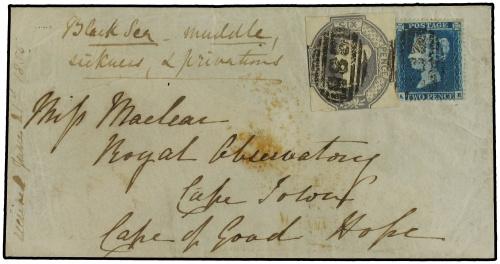 Black Sea muddle,
sickness, & privations
SIX
PENCE
POSTAGE
TWO PENCE
Miss Maclear
Royal Observatory
Cape Town
Cape of Good Hope